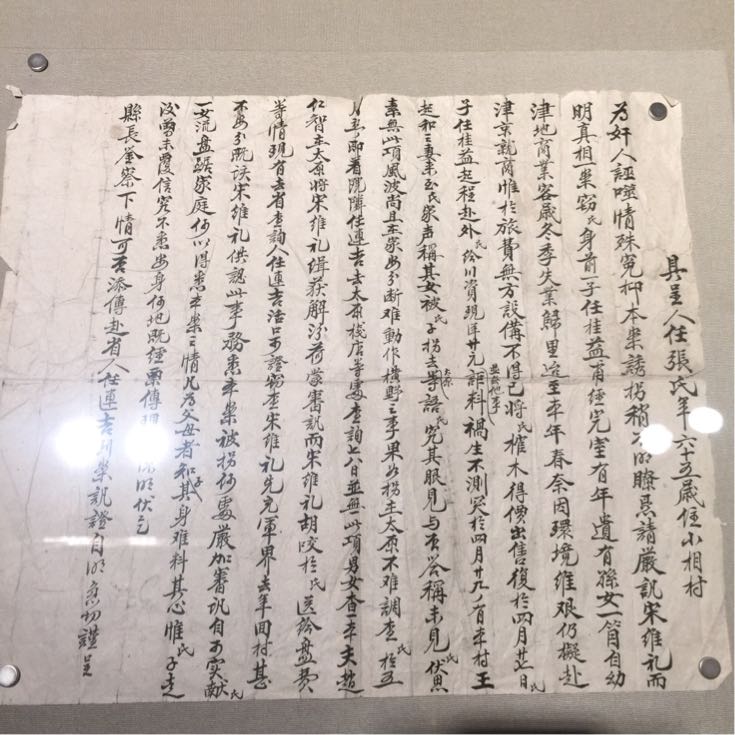 具呈人任張氏年六十五歲住小相村
為奸人誣噬情殊冤抑本案誘拐稍有曖昧懇請嚴訊宋維礼而
明真相一案窃氏身前子任桂益育經完室有年遺有孫女一箇自幼
津地商業客歲冬季失業歸里迨至本年春奈因環境維艱仍擬赴
津京就商惟於旅費無方設備不得已將氏棺木得價出售復於四月廿日氏
子任桂益起程赴外氏給川資現洋廿元並無他事詎料禍生不測突於四月廿九日有本村王
起和之妻来至氏家声稱其女被氏子拐去太原等語氏究其眼見与否答稱未見氏伏思
素無此項風波尚且在家安分断难動作橫野之事果如拐在太原不难調查氏於五
月 即着院隣任連吉去太原棧店等處查詢七八日並無此項男女查本夫趙
仁智在太原將宋維礼緝获解汾荷蒙審訊而宋維礼胡咬於氏送給盘费
等情現有去省查詢人任連吉活口可證窃查宋維礼先充軍界去年回村甚
不安分既误宋維礼供認此事務悉本案被拐何處嚴加審訊自可实献氏
一女流盘踞家庭何以得悉本案之情凡为父母者知其子身难料其心惟氏子走
後曾未覆信实不悉安身何地既經票傳理 伏乞
縣長鉴察下情可否添傳赴省人任連吉到案訊證自明哀切謹呈